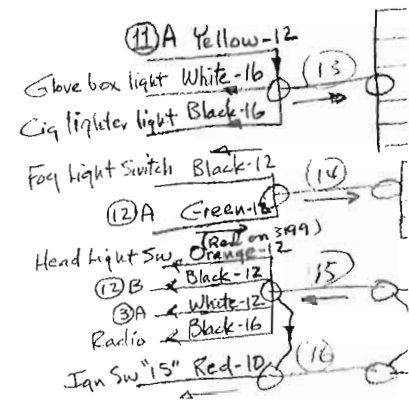 ⑪A Yellow-12
Glove box light White-16 (13)
Cig lighter light Black-16
Fog Light Switch Black-12 (14)
⑫A Green-12
(Red on 3199)
Head Light Sw Orange-12
⑫B Black-12 15
③A White-12
Radio Black-16
Ign Sw "15" Red-10 (16)